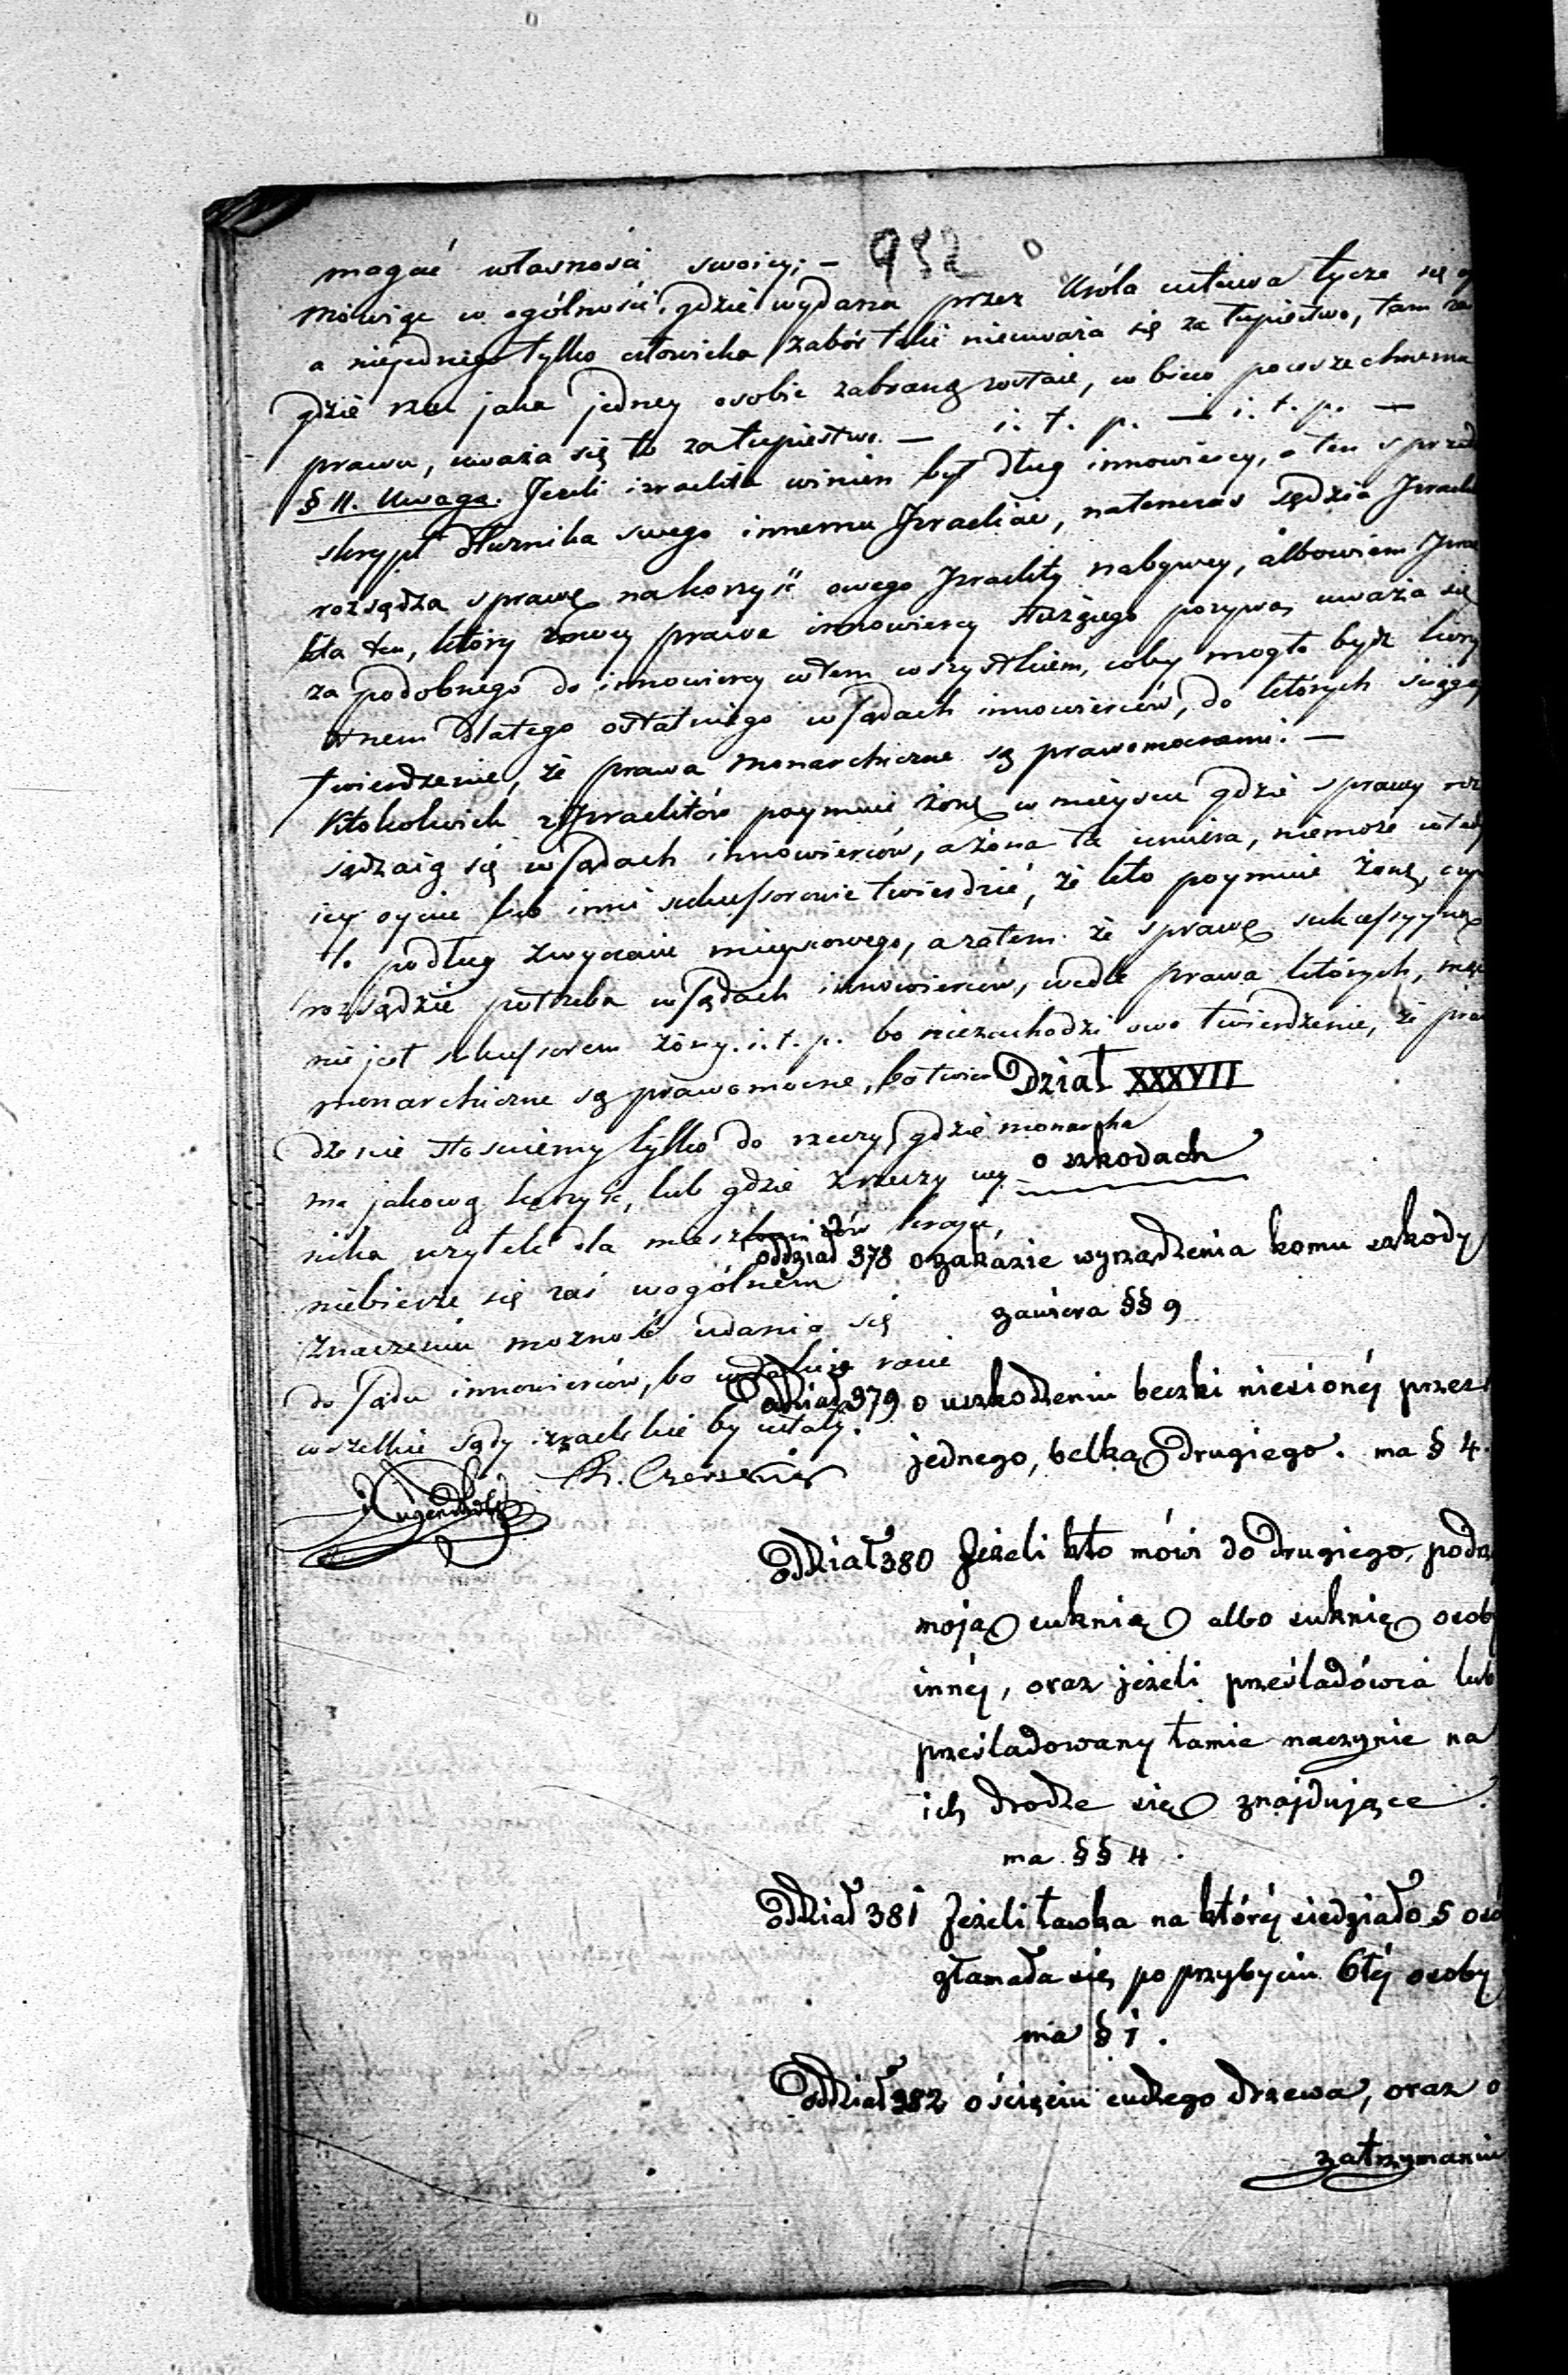 magać własności swoiey; — 952
Mówiąc w ogólności, gdzie wydana przez Króla ustawa tycze się
a niejednego tylko człowieka zabór taki nieuważa się za łupiestwo, tam
gdzie rzecz jaka jedney osobie zabraną zostaie, w brew powszechnemu
prawu, uważa się to za łupiestwo. — i. t. p. — i. t. p. —
§ 11. Uwaga. Jeżeli izraelita winien był dług innowiercy, a ten
skrypt dłużnika swego innemu Izraelicie, natenczas sędzia
rozsądza sprawę na korzyść owego Izraelity nabywcy, albowiem
lita ten, który mocą prawa innowiercy dłużnego pozywa, uważa się
za podobnego do innowiercy w tem wszystkiem, coby mogło bydź
dlatego ostatniego w sądach innowierców, do których
twierdzenie, że prawa Monarchiczne są prawomocnemi. —
Ktokolwiek z Izraelitów poymuie żonę w mieyscu gdzie sprawy
sądzaią się w sądach innowierców, a żona ta umiera, niemoże
iey oyciec lub inni sukcessorowie twierdzić, że kto poymuie żonę,
to podług zwyczaiu mieyscowego, a zatem że sprawę sukcessyyną
rozsądzić potrzeba w sądach innowierców, wedle prawa których,
nie jest sukcessorem żony. i. t. p. bo niezachodzi owo twierdzenie, że
monarchiczne są prawomocne, bo twier
dzenie stosuiemy tylko do rzeczy, gdzie monarcha
ma jakową korzyść, lub gdzie z rzeczy wy
nika użytek dla mieszkańców kraju,
niebierze się zaś w ogólném
znaczeniu możność udania się
do sądu innowierców, bo w takim razie
wszelkie sądy izraelskie by ustały.
Dział XXXVII
o szkodach
oddział 378 o zakazie wyrządzenia komu szkody
zawiera §§ 9
oddział 379 o uszkodzeniu beczki niesionéj przez
jednego, belką drugiego. ma § 4.
oddział 380 Jeżeli kto mówi do drugiego,
moją suknią albo suknię
innéj, oraz jeżeli prześladówca lub
prześladowany łamie naczynie na
ich drodze się znajdujące.
ma §§ 4.
oddział 381 Jeżeli ławka na któréj siedziało 5
złamała się, po przybyciu 6téj osoby
ma § 1.
oddział 382 o ścięciu cudzego drzewa, oraz o
zatrzymaniu